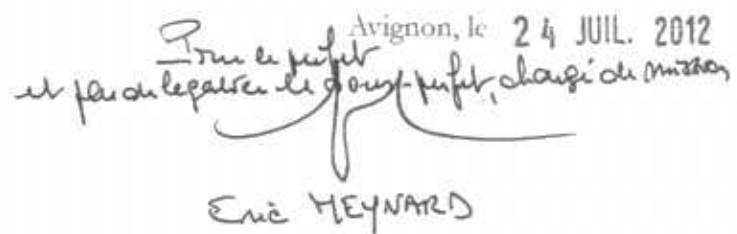 Avignon, le 24 JUIL. 2012
Pour le préfet
et par délégation le sous-préfet, chargé de mission
Eric MEYNARD